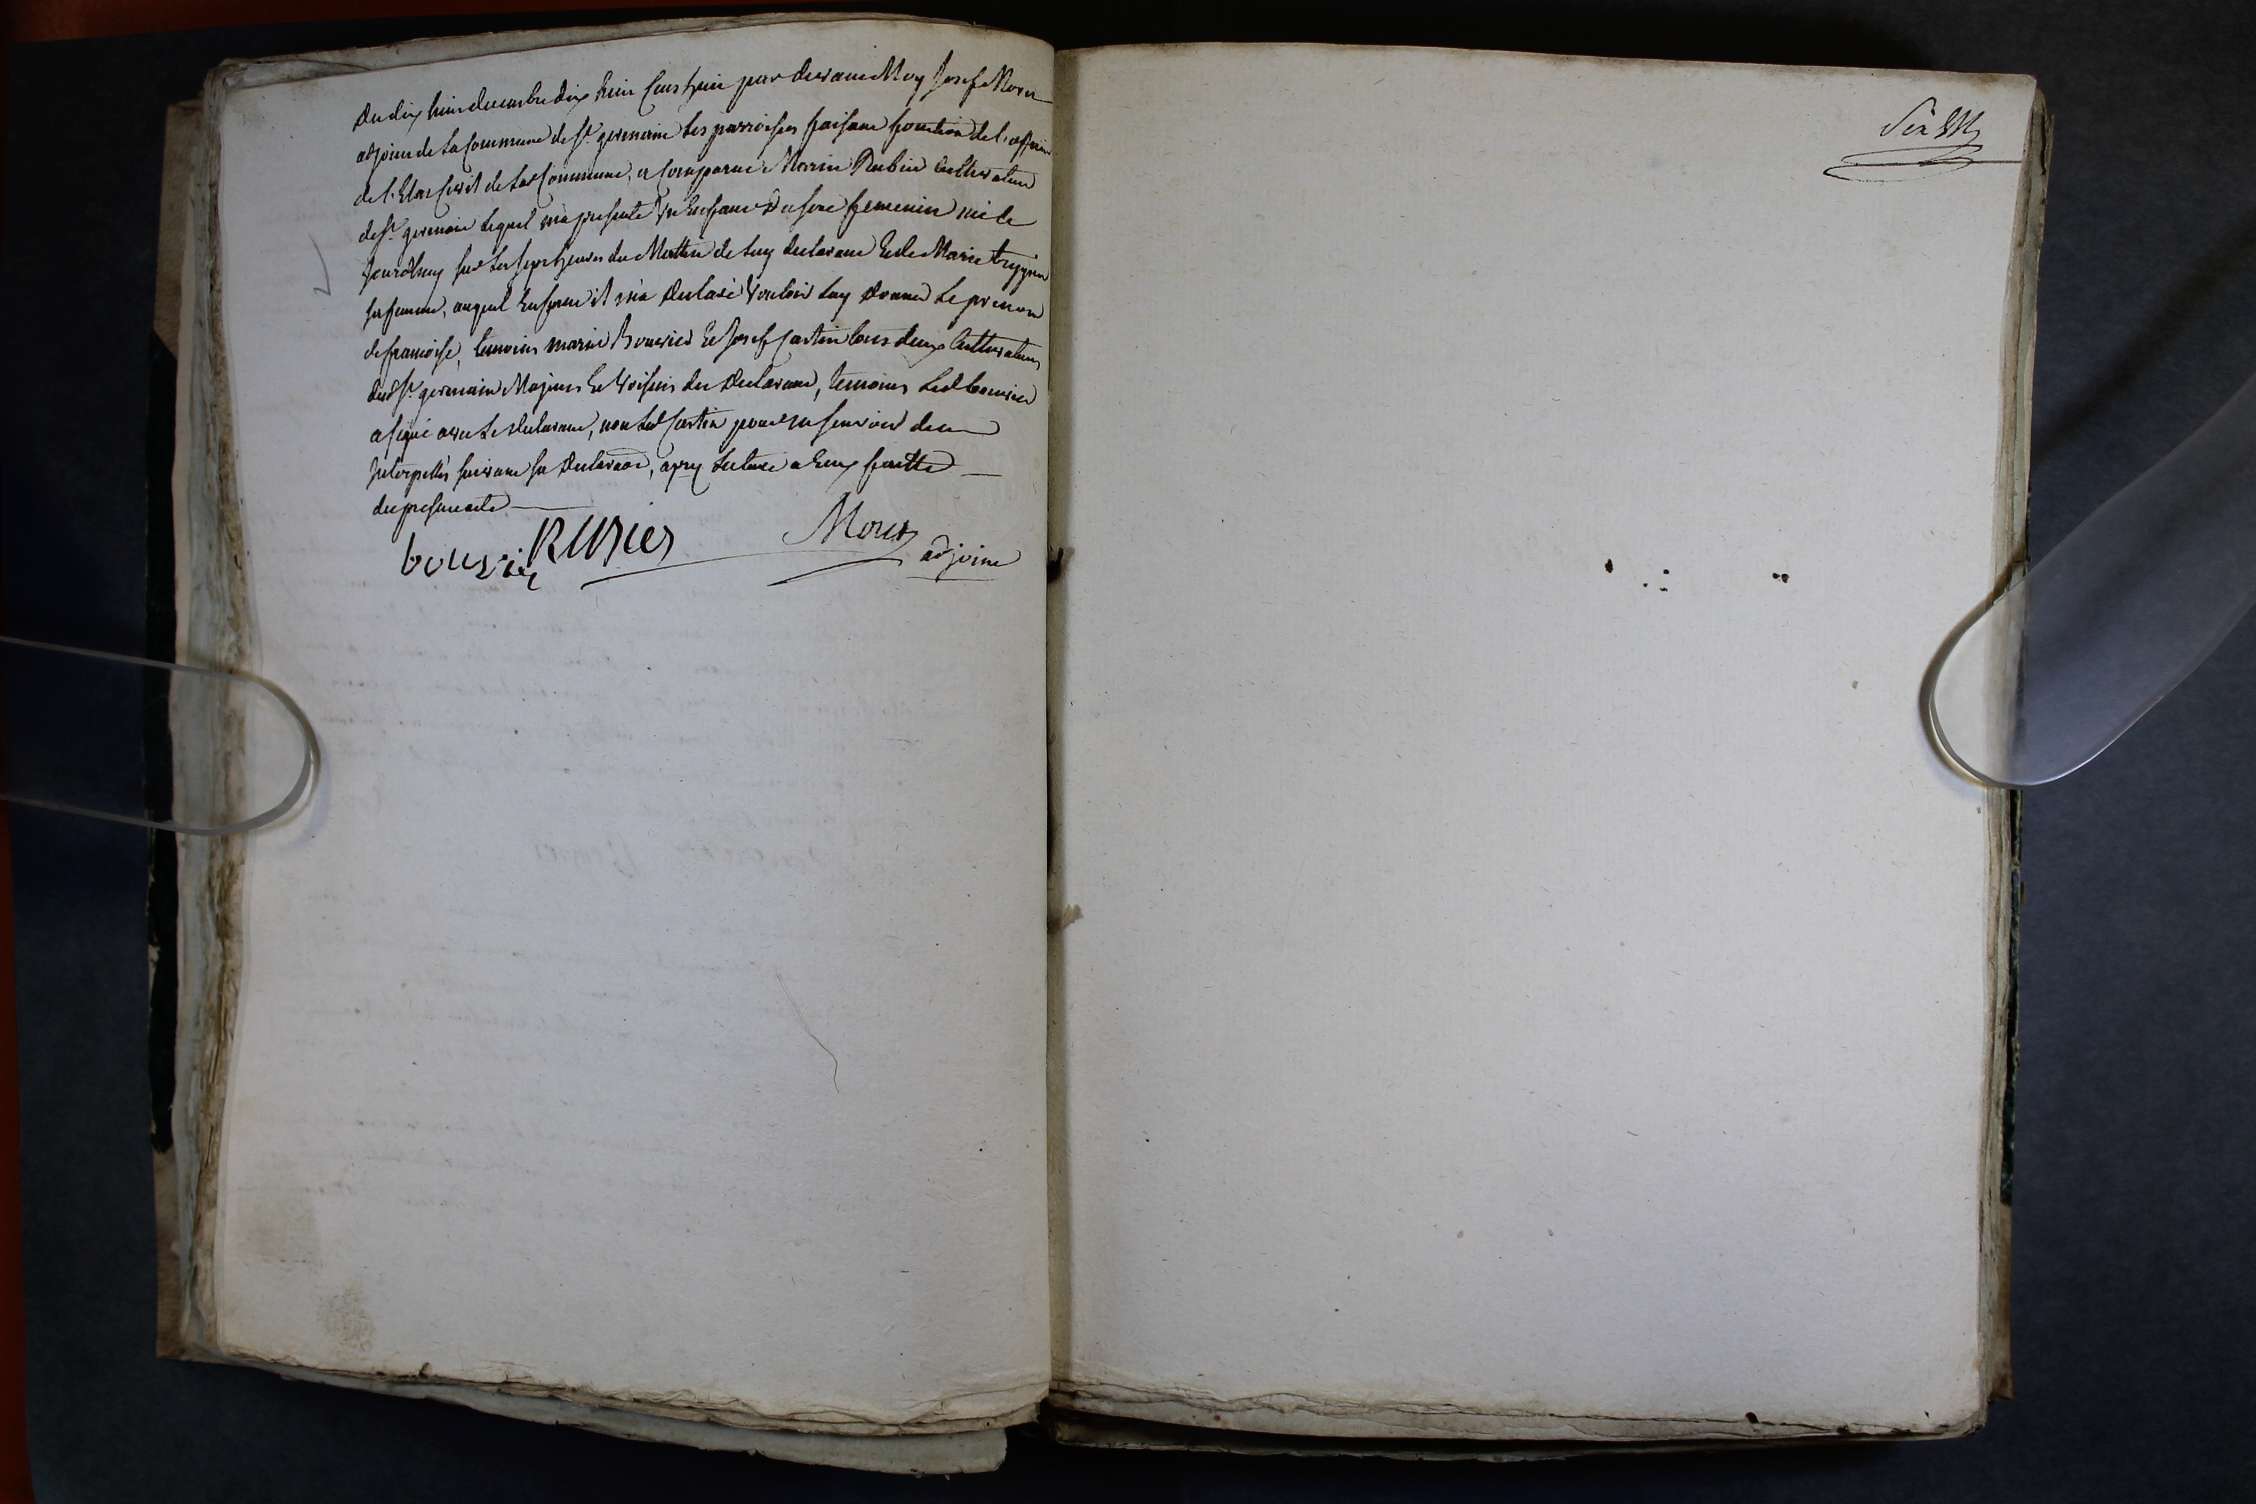 Du dix huit decembre dix huit cens huit par devant Moy Josef Moret
adjoint de la Commune de St germain les parroisses faisant fonction de l'officier
de l'Etat Civil de lad Commune, a comparut Marin Rubin Cultivateur
de St germain lequel m'a presenté Un Enfant du sexe femenin née le
jourdhuy sur les sept heures du Mattin de luy declarant Et de Marie
sa femme, auquel Enfant il m'a declaré Vouloir luy donner le prenom
de francoise, temoins marin Bouvier Et Josef Cartin tous deux Cultivateurs
dud St germain Majeurs Et Voisins du declarant, temoins led bouvier
a signé avec le declarant, non led Cartin pour ne scavoir de ce
Interpellés suivant sa declaraon, apres lecture a Eux faitte
du present acte
bouvier RUBIER Moret adjoint